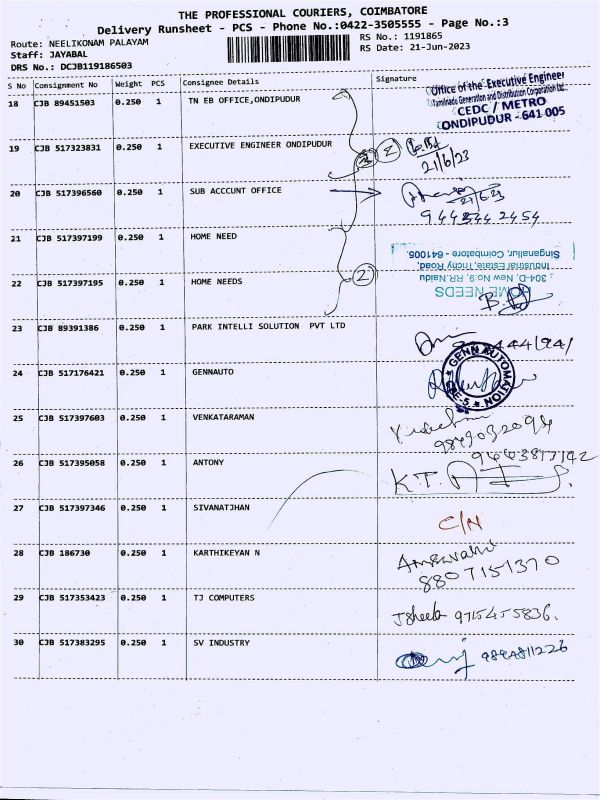 THE PROFESSIONAL COURIERS, COIMBATORE
Delivery Runsheet - PCS - Phone No.:0422-3505555 - Page No.:3
Route: NEELIKONAM PALAYAM
RS No.: 1191865
Staff: JAYABAL
RS Date: 21-Jun-2023
DRS No.: DCJB119186503
S No Consignment No Weight PCS Consignee Details Signature
18 CJB 89451503 0.250 1 TN EB OFFICE,ONDIPUDUR
Office of the Executive Engineer
Tamilnadu Generation and Distribution Corporation Ltd.
CEDC / METRO
ONDIPUDUR - 641 005
19 CJB 517323831 0.250 1 EXECUTIVE ENGINEER ONDIPUDUR
2
21/6/23
20 CJB 517396560 0.250 1 SUB ACCCUNT OFFICE
21.6.23
21 CJB 517397199 0.250 1 HOME NEED
22 CJB 517397195 0.250 1 HOME NEEDS
2
HOME NEEDS
304-D, New No.9, RR.Naidu
Industrial Estate, Trichy Road,
Singanallur, Coimbatore - 641005.
23 CJB 89391386 0.250 1 PARK INTELLI SOLUTION PVT LTD
24 CJB 517176421 0.250 1 GENNAUTO
GENN AUTOMATION
CBE-5
25 CJB 517397603 0.250 1 VENKATARAMAN
26 CJB 517395058 0.250 1 ANTONY
K.T.
27 CJB 517397346 0.250 1 SIVANATJHAN
C/N
28 CJB 186730 0.250 1 KARTHIKEYAN N
8807151370
29 CJB 517353423 0.250 1 TJ COMPUTERS
J Sheeb 9715455836.
30 CJB 517383295 0.250 1 SV INDUSTRY
9894811226